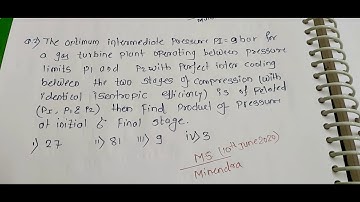 Q.2) The optimum intermediate pressure PI = 9 bar for
a gas turbine plant operating between pressure
limits P1 and P2 with perfect inter cooling
between the two stages of compression (with
identical isentropic efficiency) is of related
(PI, P1 & P2) then find Product of Pressure
at initial & Final stage.
i) 27 ii) 81 iii) 9 iv) 3
MS (10th June 2020)
Minendra